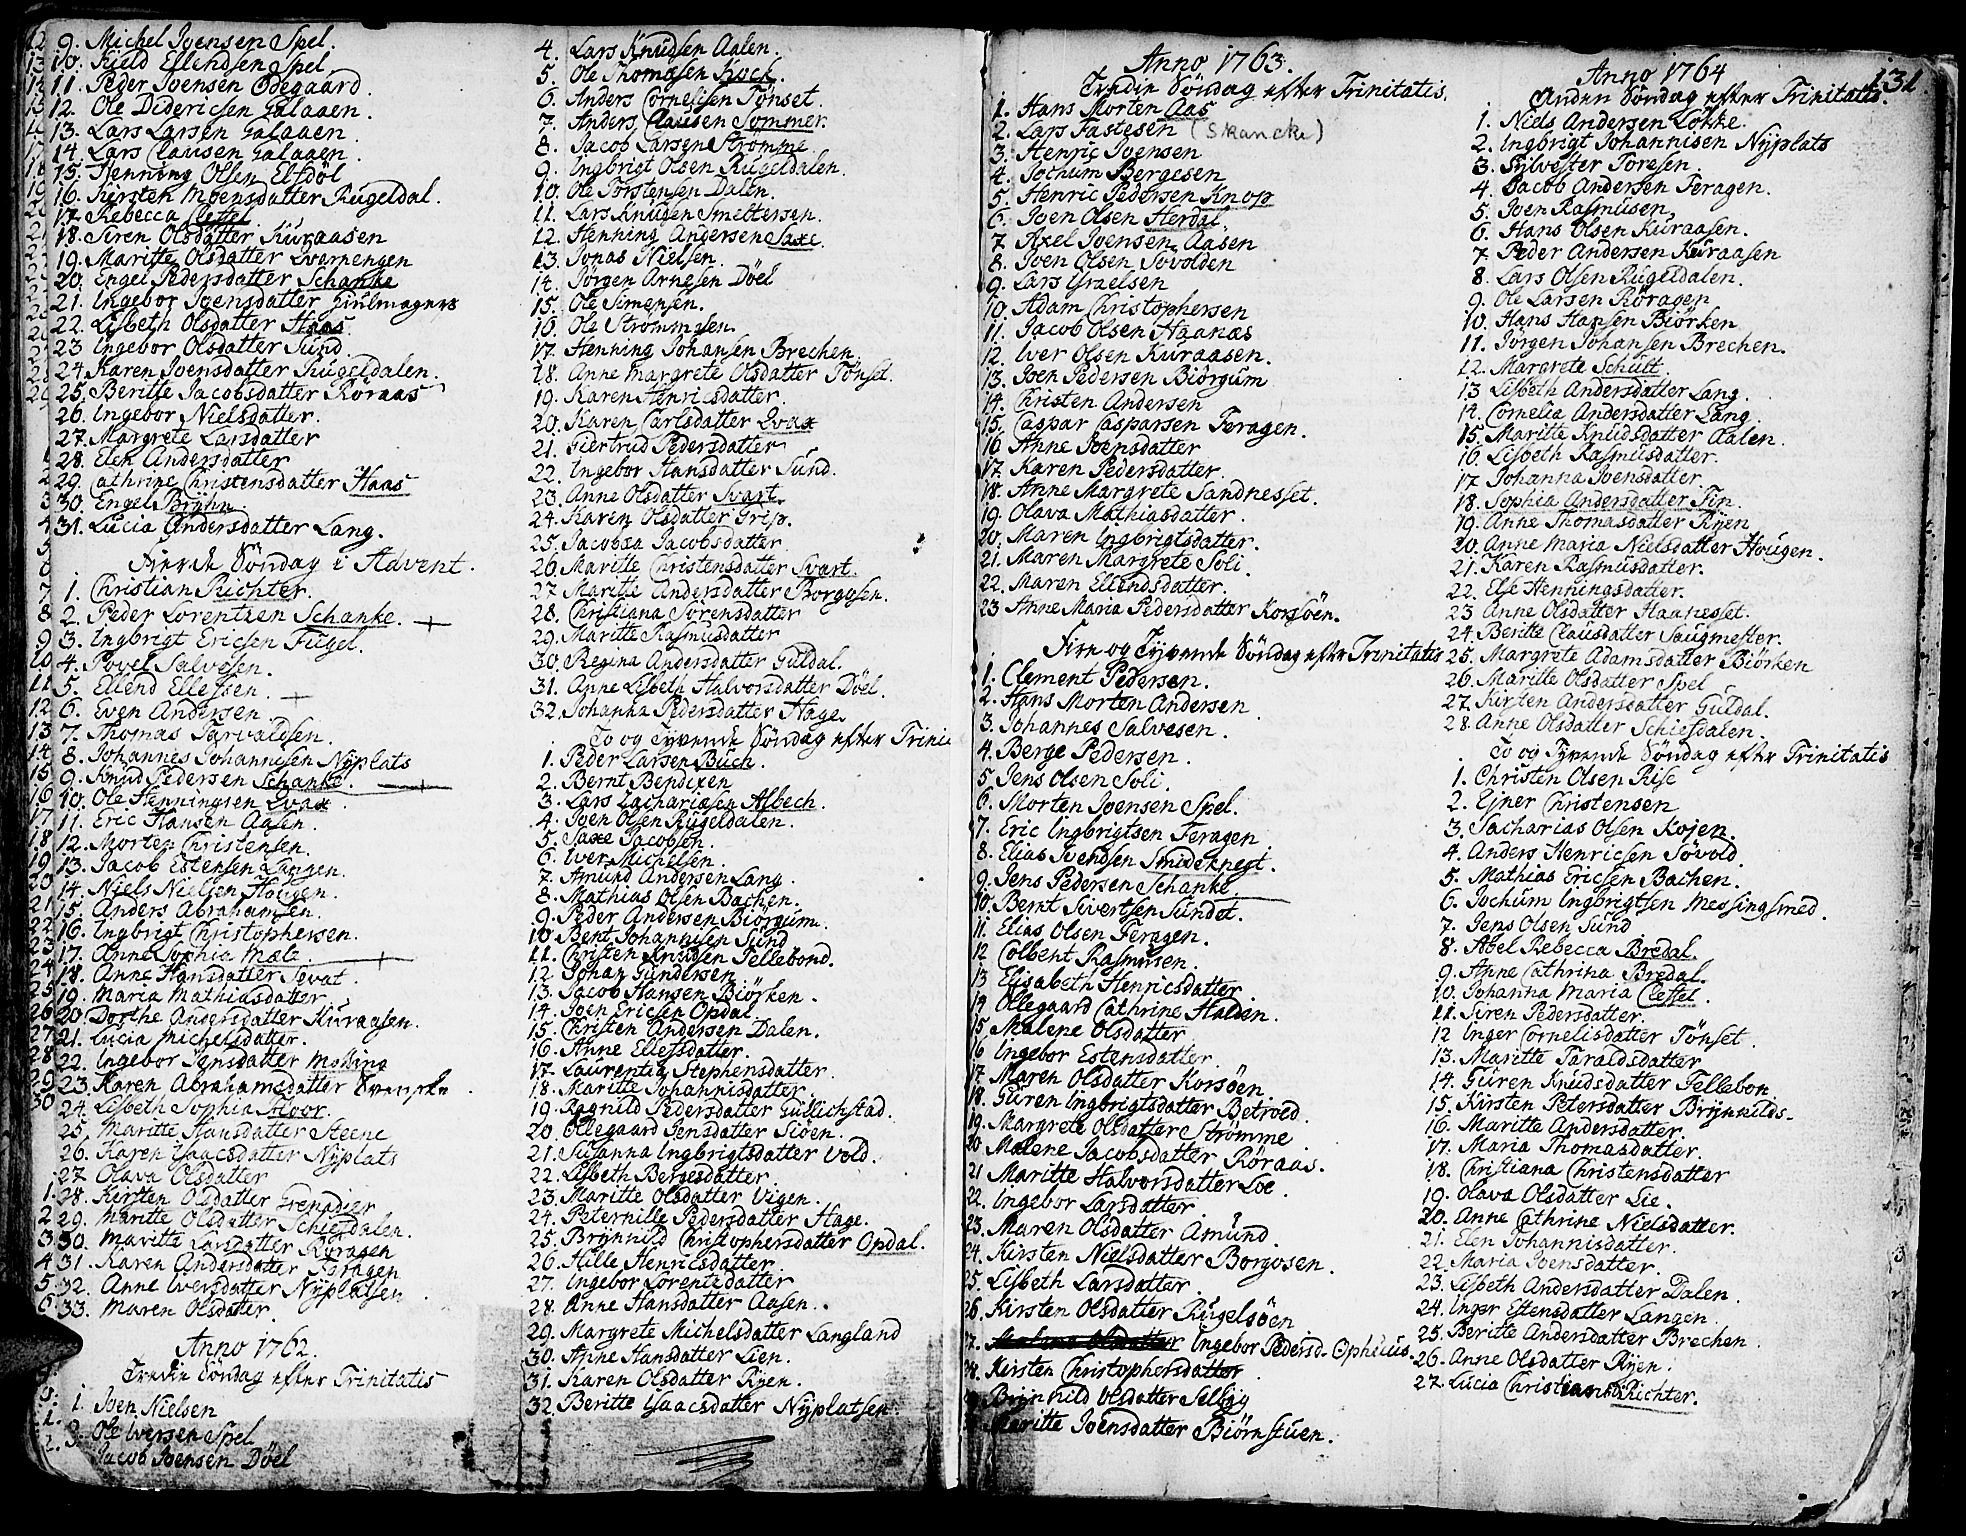 9. Michel Joensen Spel.
10. Kield Ellendsen Spel
11. Peder Joensen Ødegaard.
12. Ole Didericsen Galaaen.
13. Lars Larsen Galaaen.
14. Lars Clausen Galaaen.
15. Henning Olsen Elfdöl
16. Kirsten Moensdatter Rugeldal.
17. Rebecca Cleffel
18. Siren Olsdatter Kuraasen
19. Maritte Olsdatter Qvarnengen
20. Engel Pedersdatter Schanke
21. Ingebor Joensdatter Hiulmagers
22. Lisbeth Olsdatter Haas
23 Ingebor Olsdatter Sund.
24. Karen Joensdatter Rugeldalen.
25. Beritte Jacobsdatter Röraas
26. Ingebor Nielsdatter.
27. Margrete Larsdatter
28. Elen Andersdatter
29. Cathrine Christensdatter Haas
30. Engel Bryhn
31. Lucia Andersdatter Lang.
Fierde Söndag i Advent.
1. Christian Richter.
2. Peder Lorentzen Schanke.
3. Ingbrigt Ericsen Fugel.
4. Povel Salvesen.
5. Ellend Ellefsen.
6. Even Andersen.
7. Thomas Tarvaldsen.
8. Johannes Johannisen Nyplats
9. Knud Pedersen Schanke.
10. Ole Henningsen Qvax
11. Eric Hansen Aasen.
12. Morten Christensen.
13. Jacob Estensen Langen.
14. Niels Nielsen Hovgen.
15. Anders Abrahamsen.
16. Ingbrigt Christophersen.
17. Anne Sophia Malz.
18. Anne Hansdatter Tevat.
19. Maria Mathiasdatter
20. Dorthe Andersdatter Kuraasen.
21. Lucia Michelsdatter.
22. Ingebor Jensdatter Mölling
23. Karen Abrahamsdatter Svenske
24. Lisbeth Sophia Floor.
25. Maritte Hansdatter Steene
26. Karen Isaacsdatter Nyplats
27. Olava Olsdatter
28. Kirsten Olsdatter Grenadier
29. Maritte Olsdatter Schiefdalen.
30. Maritte Larsdatter Röragen
31. Karen Andersdatter Röragen
32. Anne Iversdatter Nyplatsen
33. Maren Olsdatter.
Anno 1762.
Tredie Söndag efter Trinitatis
1. Joen Nielsen
2. Ole Iversen Spel.
Jacob Joensen Döel
4. Lars Knudsen Aalen.
5. Ole Thomasen Kock.
6. Anders Cornelisen Tönset.
7. Anders Clausen Sommer.
8. Jacob Larsen Strömme
9. Ingbrigt Olsen Rugeldalen.
10. Ole Torstensen Dalen.
11. Lars Knudsen Smeltersen.
12. Henning Andersen Saxe.
13. Jonas Nielsen.
14. Jörgen Arnesen Döel
15. Ole Simensen.
16. Ole Strömmesen.
17. Henning Johansen Brechen.
18. Anne Margrete Olsdatter Tönset.
19. Karen Henricsdatter.
20. Karen Carlsdatter Qvax
21. Giertrud Pedersdatter
22. Ingebor Hansdatter Sund.
23. Anne Olsdatter Svart.
24. Karen Olsdatter Grip.
25. Jacobsa Jacobsdatter
26. Maritte Christensdatter Svart.
27. Maritte Andersdatter Borgosen.
28. Christiana Sörensdatter
29. Maritte Rasmusdatter
30. Regina Andersdatter Guldal.
31. Anne Lisbeth Halvorsdatter Döel.
32. Johanna Pedersdatter Hage.
To og Tyvende Söndag efter Trini
1. Peder Larsen Buch.
2. Bernt Bendixen
3. Lars Zachariasen Albech.
4. Joen Olsen Rugeldalen.
5. Saxe Jacobsen.
6. Iver Michelsen.
7. Amund Andersen Lang.
8. Mathias Olsen Bachen.
9. Peder Andersen Biörgum.
10. Bent Johannisen Sund
11. Christen Knudsen Tellebond.
12. Johan Gundersen
13. Jacob Hansen Biörken.
14. Joen Ericsen Opdal
15. Christen Andersen Dalen.
16. Anne Ellefsdatter.
17. Laurentia Stephensdatter.
18. Maritte Johannisdatter
19. Ragnild Pedersdatter Gullichstad.
20. Ollegaard Jensdatter Siöen.
21. Susanna Ingbrigtsdatter Vold.
22. Lisbeth Bergesdatter
23. Maritte Olsdatter Vigen.
24. Peternille Pedersdatter Hage.
25. Brynnild Christophersdatter Opdal.
26. Hille Henricsdatter
27. Ingebor Lorentzdatter
28. Anne Hansdatter Aasen.
29. Margrete Michelsdatter Langland
30. Anne Hansdatter Lien.
31. Karen Olsdatter Ryen.
32. Beritte Isaacsdatter Nyplatsen.
Anno 1763.
Tredie Söndag efter Trinitatis.
1. Hans Morten Aas
2. Lars Fastesen (Skancke)
3. Henric Joensen
4. Jochum Bergesen
5. Henric Pedersen Knop
6. Joen Olsen Herdal
7. Axel Joensen Aasen
8. Joen Olsen Sovolden
9. Lars Israelsen
10. Adam Christophersen
11. Jacob Olsen Haanæs
12. Iver Olsen Kuraasen.
13. Joen Pedersen Biörgum
14. Christen Andersen
15. Caspar Casparsen Feragen.
16 Anne Joensdatter
17. Karen Pedersdatter
18. Anne Margrete Sandnesset.
19. Olava Mathiasdatter.
20. Maren Ingbrigtsdatter.
21. Maren Margrete Soli.
22. Maren Ellendsdatter.
23. Anne Maria Pedersdatter Korssöen.
Fire og Tyvende Söndag efter Trinitatis
1. Clement Pedersen.
2. Hans Morten Andersen
3. Johannes Salvesen.
4. Berge Pedersen.
5. Jens Olsen Soli.
6. Morten Joensen Spel.
7. Eric Ingbrigtsen Feragen
8. Elias Svendsen Smideknegt.
9. Jens Pedersen Schanke.
10. Bernt Sivertsen Sundet.
11. Elias Olsen Feragen.
12 Colbent Rasmusen.
13 Elisabeth Henricsdatter
14. Ollegaard Cathrine Haldin.
15 Malene Olsdatter
16 Ingebor Estensdatter
17. Maren Olsdatter Korsöen
18. Guren Ingbrigtsdatter Betroed.
19. Margrete Olsdatter Strömme
20 Malene Jacobsdatter Röraas.
21 Maritte Halvorsdatter Loe
22. Ingebor Larsdatter
23. Maren Olsdatter Amund.
24. Kirsten Nielsdatter Borgosen.
25. Lisbeth Larsdatter
26. Kirsten Olsdatter Rugelsöen
27. Malene Olsdatter Ingebor Pedersd. Ophuus.
28. Kirsten Christophersdatter
Brynnild Olsdatter Selbyg
Maritte Joensdatter Biörnstuen.
131.
Anno 1764
Anden Söndag efter Trinitatis.
1. Niels Andersen Lökke.
2. Ingbrigt Johannisen Nyplats
3. Sylvester Toresen.
4. Jacob Andersen Feragen.
5. Joen Rasmusen
6. Hans Olsen Kuraasen.
7. Peder Andersen Kuraasen
8. Lars Olsen Rugeldalen.
9. Ole Larsen Röragen
10. Hans Hansen Biörken
11. Jörgen Johansen Brechen.
12. Margrete Schult.
13 Lisbeth Andersdatter Lang.
14. Cornelia Andersdatter Lang
15. Maritte Knudsdatter Aalen.
16. Lisbeth Rasmusdatter.
17 Johanna Joensdatter.
18. Sophia Andersdatter Fin.
19. Anne Thomasdatter Ryen
20. Anne Maria Nielsdatter Hougen.
21. Karen Rasmusdatter.
22. Else Henningsdatter.
23 Anne Olsdatter Haanesset.
24. Beritte Clausdatter Saugmester.
25. Margrete Adamsdatter Biörken
26. Maritte Olsdatter Spel
27. Kirsten Andersdatter Guldal.
28. Anne Olsdatter Schiefdalen.
To og Tyvende Söndag efter Trinitatis
1. Christen Olsen Rise
2. Ejner Christensen
3. Sacharias Olsen Kojen.
4. Anders Henricsen Sövold.
5. Mathias Ericsen Bachen.
6. Jochum Ingbrigtsen Messingsmed.
7. Jens Olsen Sund
8. Abel Rebecca Bredal.
9. Anne Cathrina Bredal.
10. Johanna Maria Cleffel.
11. Siren Pedersdatter.
12 Inger Cornelisdatter Tönset.
13. Maritte Taraldsdatter
14. Guren Knudsdatter Tellebon
15. Kirsten Petersdatter Brynhilds-
16. Maritte Andersdatter.
17. Maria Thomasdatter.
18. Christiana Christensdatter
19. Olava Olsdatter Lie.
20. Anne Cathrine Nielsdatter.
21. Elen Johannisdatter.
22. Maria Joensdatter.
23. Lisbeth Andersdatter Dalen.
24. Inger Estensdatter Langen.
25. Beritte Andersdatter Brechen.
26. Anne Olsdatter Ryen.
27. Lucia Christians Richter.